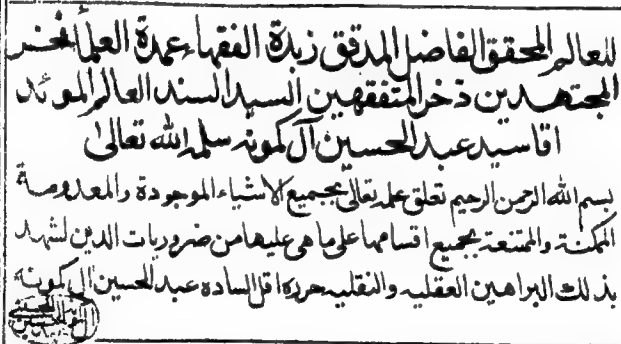 للعالم المحقق الفاضل المدقق زبدة الفقهاء عمدة العلماء فخر
المجتهدين ذخر المتفقهين السيد السند العالم المؤيد
اقا سيد عبد الحسين آل كمونه سلمه الله تعالى
بسم الله الرحمن الرحيم تعلق علمه تعالى بجميع الاشياء الموجودة والمعدومة
الممكنة والممتنعة بجميع اقسامها على ما هى عليها من ضروريات الدين لشهد
بذلك البراهين العقليه والنقليه حرره اقل الساده عبد الحسين آل كمونه